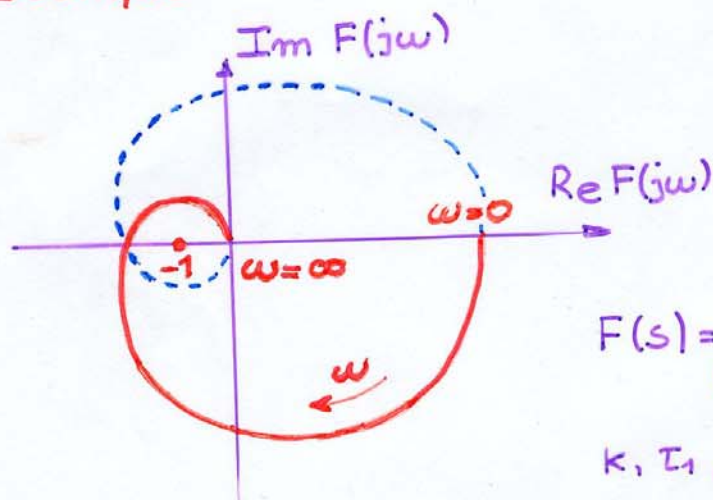 Im F(jω)
Re F(jω)
ω=0
-1
ω=∞
F(s)=
ω
K, τ₁